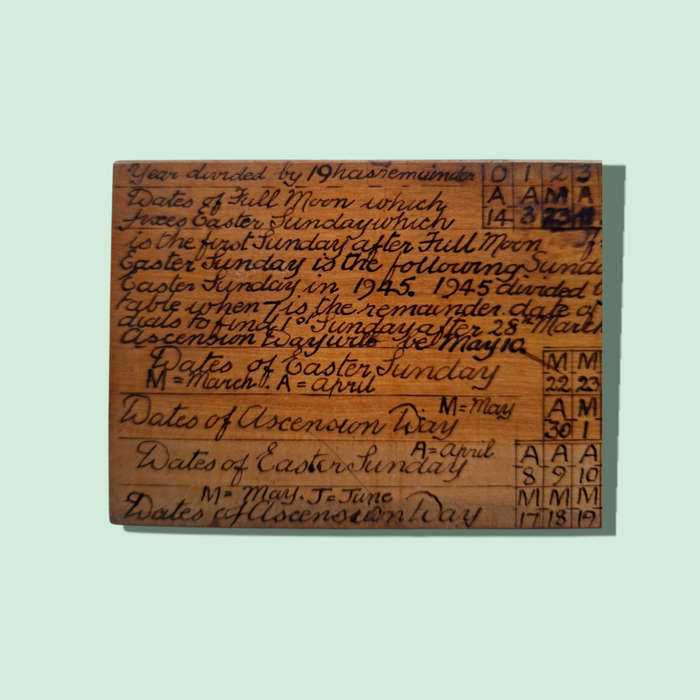 Year divided by 19 has remainder 0 1 2 3
Dates of Full Moon which A A M A
fixes Easter Sunday which 14 3 23
is the first Sunday after Full Moon
Easter Sunday is the following Sunda
Easter Sunday in 1945. 1945 divided
table when 7 is the remainder date of
dials to find 1º Sunday after 28th March
Ascension Day will be May 10.
Dates of Easter Sunday M M
M = March. A = April 22 23
M = May A M
Dates of Ascension Day 30 1
A = April A A A
Dates of Easter Sunday 8 9 10
M = May. J = June M M M
Dates of Ascension Day 17 18 19